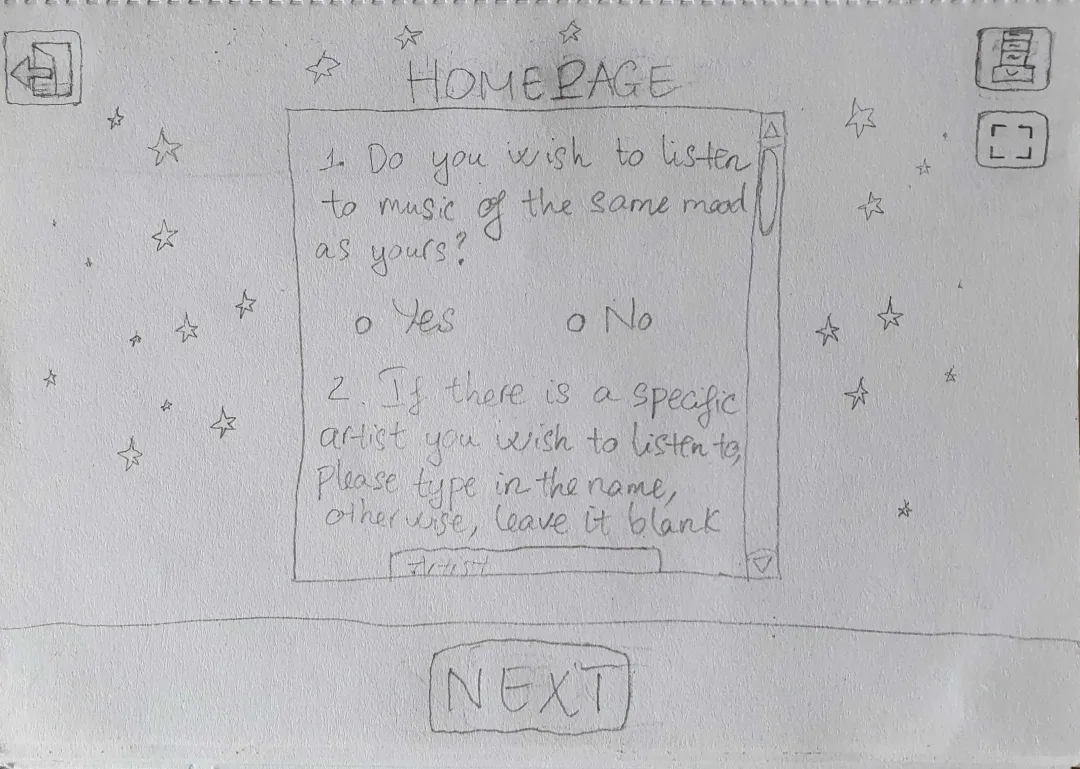 HOMEPAGE
1. Do you wish to listen
to music of the same mood
as yours?
Yes
No
2. If there is a specific
artist you wish to listen to,
please type in the name,
otherwise, leave it blank
Artist
NEXT